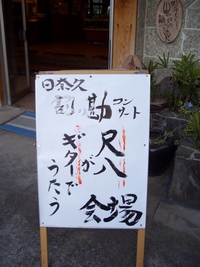 日奈久
の勘コンサート
尺八が
ギターで
うたう
会場